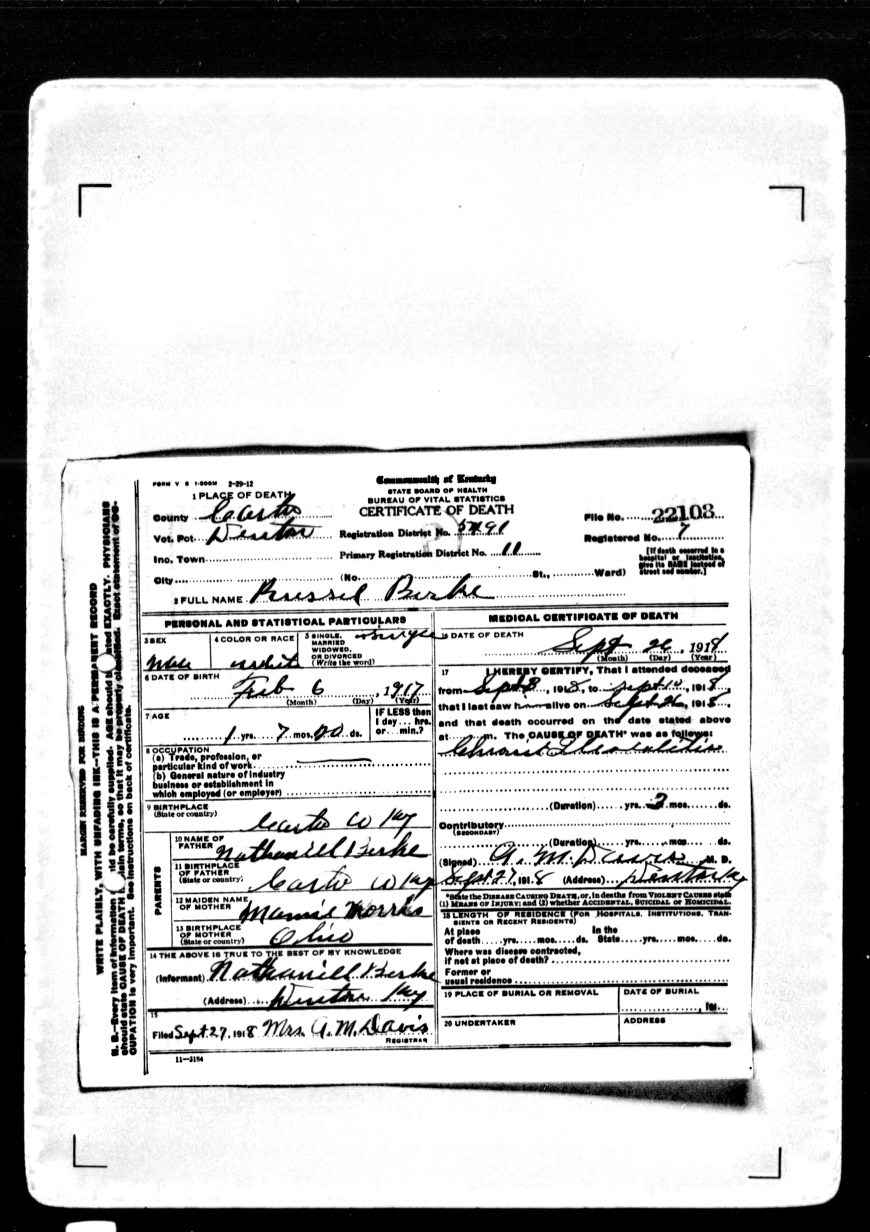 FORM V S 1-500M 2-29-12
Commonwealth of Kentucky
STATE BOARD OF HEALTH
BUREAU OF VITAL STATISTICS
CERTIFICATE OF DEATH
1 PLACE OF DEATH
County Carter
Vot. Pct. Denton
Inc. Town
City (No. St., Ward)
Registration District No.
Primary Registration District No. 11
File No. 22103
Registered No. 7
[If death occurred in a hospital or institution, give its NAME instead of street and number.]
2 FULL NAME Russel Burke
PERSONAL AND STATISTICAL PARTICULARS
3 SEX Male
4 COLOR OR RACE white
5 SINGLE, MARRIED WIDOWED, OR DIVORCED (Write the word) single
6 DATE OF BIRTH
Feb 6, 1917
(Month) (Day) (Year)
7 AGE
1 yrs. 7 mos. 20 ds.
IF LESS than 1 day... hrs. or... min.?
8 OCCUPATION
(a) Trade, profession, or particular kind of work
(b) General nature of industry business or establishment in which employed (or employer)
9 BIRTHPLACE
(State or country) Carter Co Ky
PARENTS
10 NAME OF FATHER Nathaniell Burke
11 BIRTHPLACE OF FATHER (State or country) Carter Co Ky
12 MAIDEN NAME OF MOTHER Mamie Morris
13 BIRTHPLACE OF MOTHER (State or country) Ohio
14 THE ABOVE IS TRUE TO THE BEST OF MY KNOWLEDGE
(Informant) Nathaniell Burke
(Address) Denton Ky
15
Filed Sept. 27, 1918 Mrs. A. M. Davis
REGISTRAR
11-3184
MEDICAL CERTIFICATE OF DEATH
16 DATE OF DEATH
Sept 26, 1918
(Month) (Day) (Year)
17 I HEREBY CERTIFY, That I attended deceased
from Sept 8, 1918, to Sept 10, 1918,
that I last saw h alive on Sept 26, 1918,
and that death occurred on the date stated above
at m. The CAUSE OF DEATH* was as follows:
(Duration) yrs. 3 mos. ds.
Contributory
(SECONDARY)
(Duration) yrs. mos. ds.
(Signed) A. M. Davis M. D.
Sept 27, 1918 (Address) Denton Ky
*State the DISEASE CAUSING DEATH, or, in deaths from VIOLENT CAUSES state (1) MEANS OF INJURY; and (2) whether ACCIDENTAL, SUICIDAL OR HOMICIDAL.
18 LENGTH OF RESIDENCE (FOR HOSPITALS, INSTITUTIONS, TRANSIENTS OR RECENT RESIDENTS)
At place of death yrs. mos. ds. In the State yrs. mos. ds.
Where was disease contracted, if not at place of death?
Former or usual residence
19 PLACE OF BURIAL OR REMOVAL
DATE OF BURIAL
191
20 UNDERTAKER
ADDRESS
MARGIN RESERVED FOR BINDING
WRITE PLAINLY, WITH UNFADING INK—THIS IS A PERMANENT RECORD
N. B.—Every item of information should be carefully supplied. AGE should be stated EXACTLY. PHYSICIANS
should state CAUSE OF DEATH in plain terms, so that it may be properly classified. Exact statement of OC-
CUPATION is very important. See instructions on back of certificate.